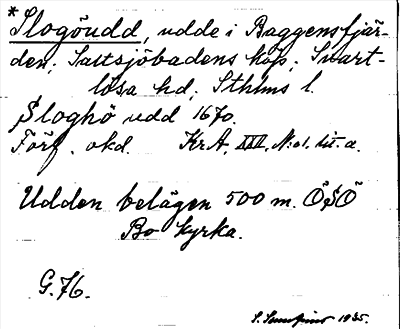 *Slogöudd, udde i Baggensfjär-
den; Saltsjöbadens köp; Svart-
lösa hd; Sthlms l.
Sloghö udd 1670.
Förf. okd. KrA, XIV, N:o1. lit. a.
Udden belägen 500 m. ÖSÖ
Bo kyrka.
G. 76.
S. 1935.